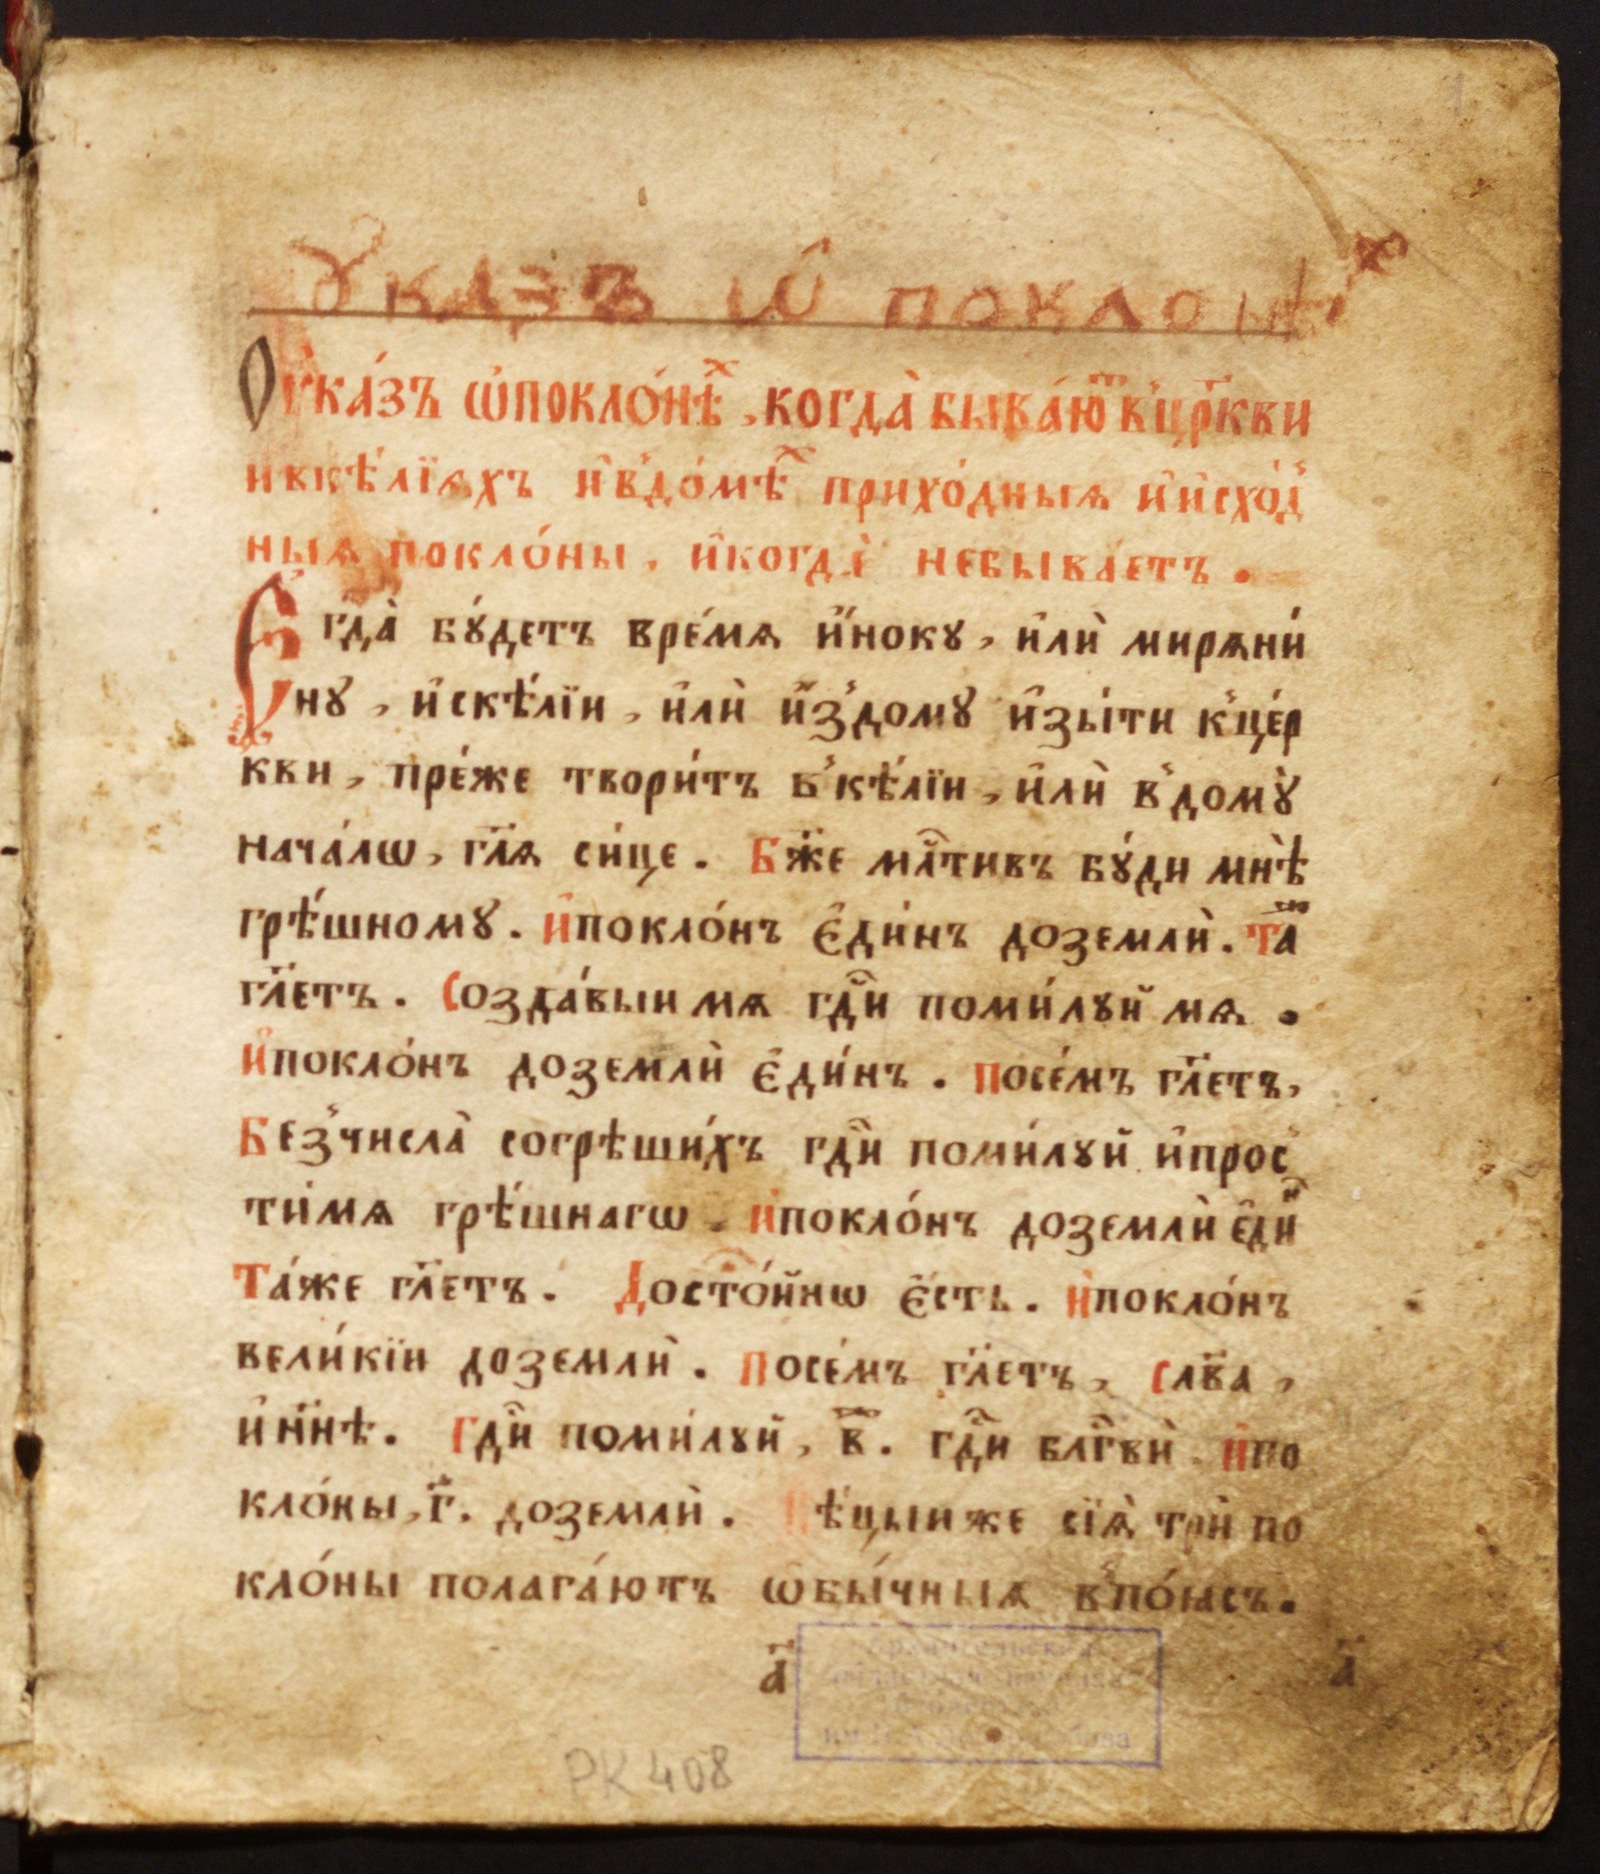 Ꙋказъ ѡ҆ поклонѣⷯ
Оу҆ка́зъ ѡ҆поклѡ́нѣⷯ, когда̀ быва́юⷮ в̾цр҃кви
и҆вкѣ́лїѧхъ и҆в̾до́мѣⷯ прихо́дныѧ и҆и҆схо́д̾
ныѧ покло́ны, и҆когда̀ небыва́етъ.
Е҆гда̀ бꙋ́детъ вре́мѧ и҆́нокꙋ, и҆лѝ мирѧни́
нꙋ, и҆скѣ́лїи, и҆лѝ и҆з̾домꙋ и҆зы́ти к̾це́р
кви, пре́же твори́тъ в̾кѣ́лїи, и҆лѝ в̾домꙋ̀
нача́лѡ, гл҃ѧ си́це. Бж҃е мл҇тивъ бꙋ́ди мнѣ̀
грѣ́шномꙋ. и҆покло́нъ є҆ди́нъ доземлѝ. Таⷤ
гл҃етъ. Созда́выи мѧ гд҇и поми́лꙋй мѧ.
и҆покло́нъ доземлѝ є҆ди́нъ. посе́мъ гл҃етъ,
Без̾числа̀ согрѣши́хъ гд҇и поми́лꙋй и҆прос̾
ти́мѧ грѣ́шнагѡ. и҆покло́нъ доземлѝ є҆диⷩ
Та́же гл҃етъ. Досто́йнѡ є҆́сть. и҆покло́нъ
вели́кїи доземлѝ. посе́мъ гл҃етъ, сла҃ва,
и҆нн҃ѣ. гд҇и поми́лꙋй, в҃. гд҇и бл҇гвѝ. и҆по
кло́ны, г҃. доземлѝ. нѣ́цыи же сїѧ̀ трѝ по
кло́ны полага́ютъ ѡ҆бы́чныѧ в̾по́ꙗсъ.
а҃
а҃
РК 408